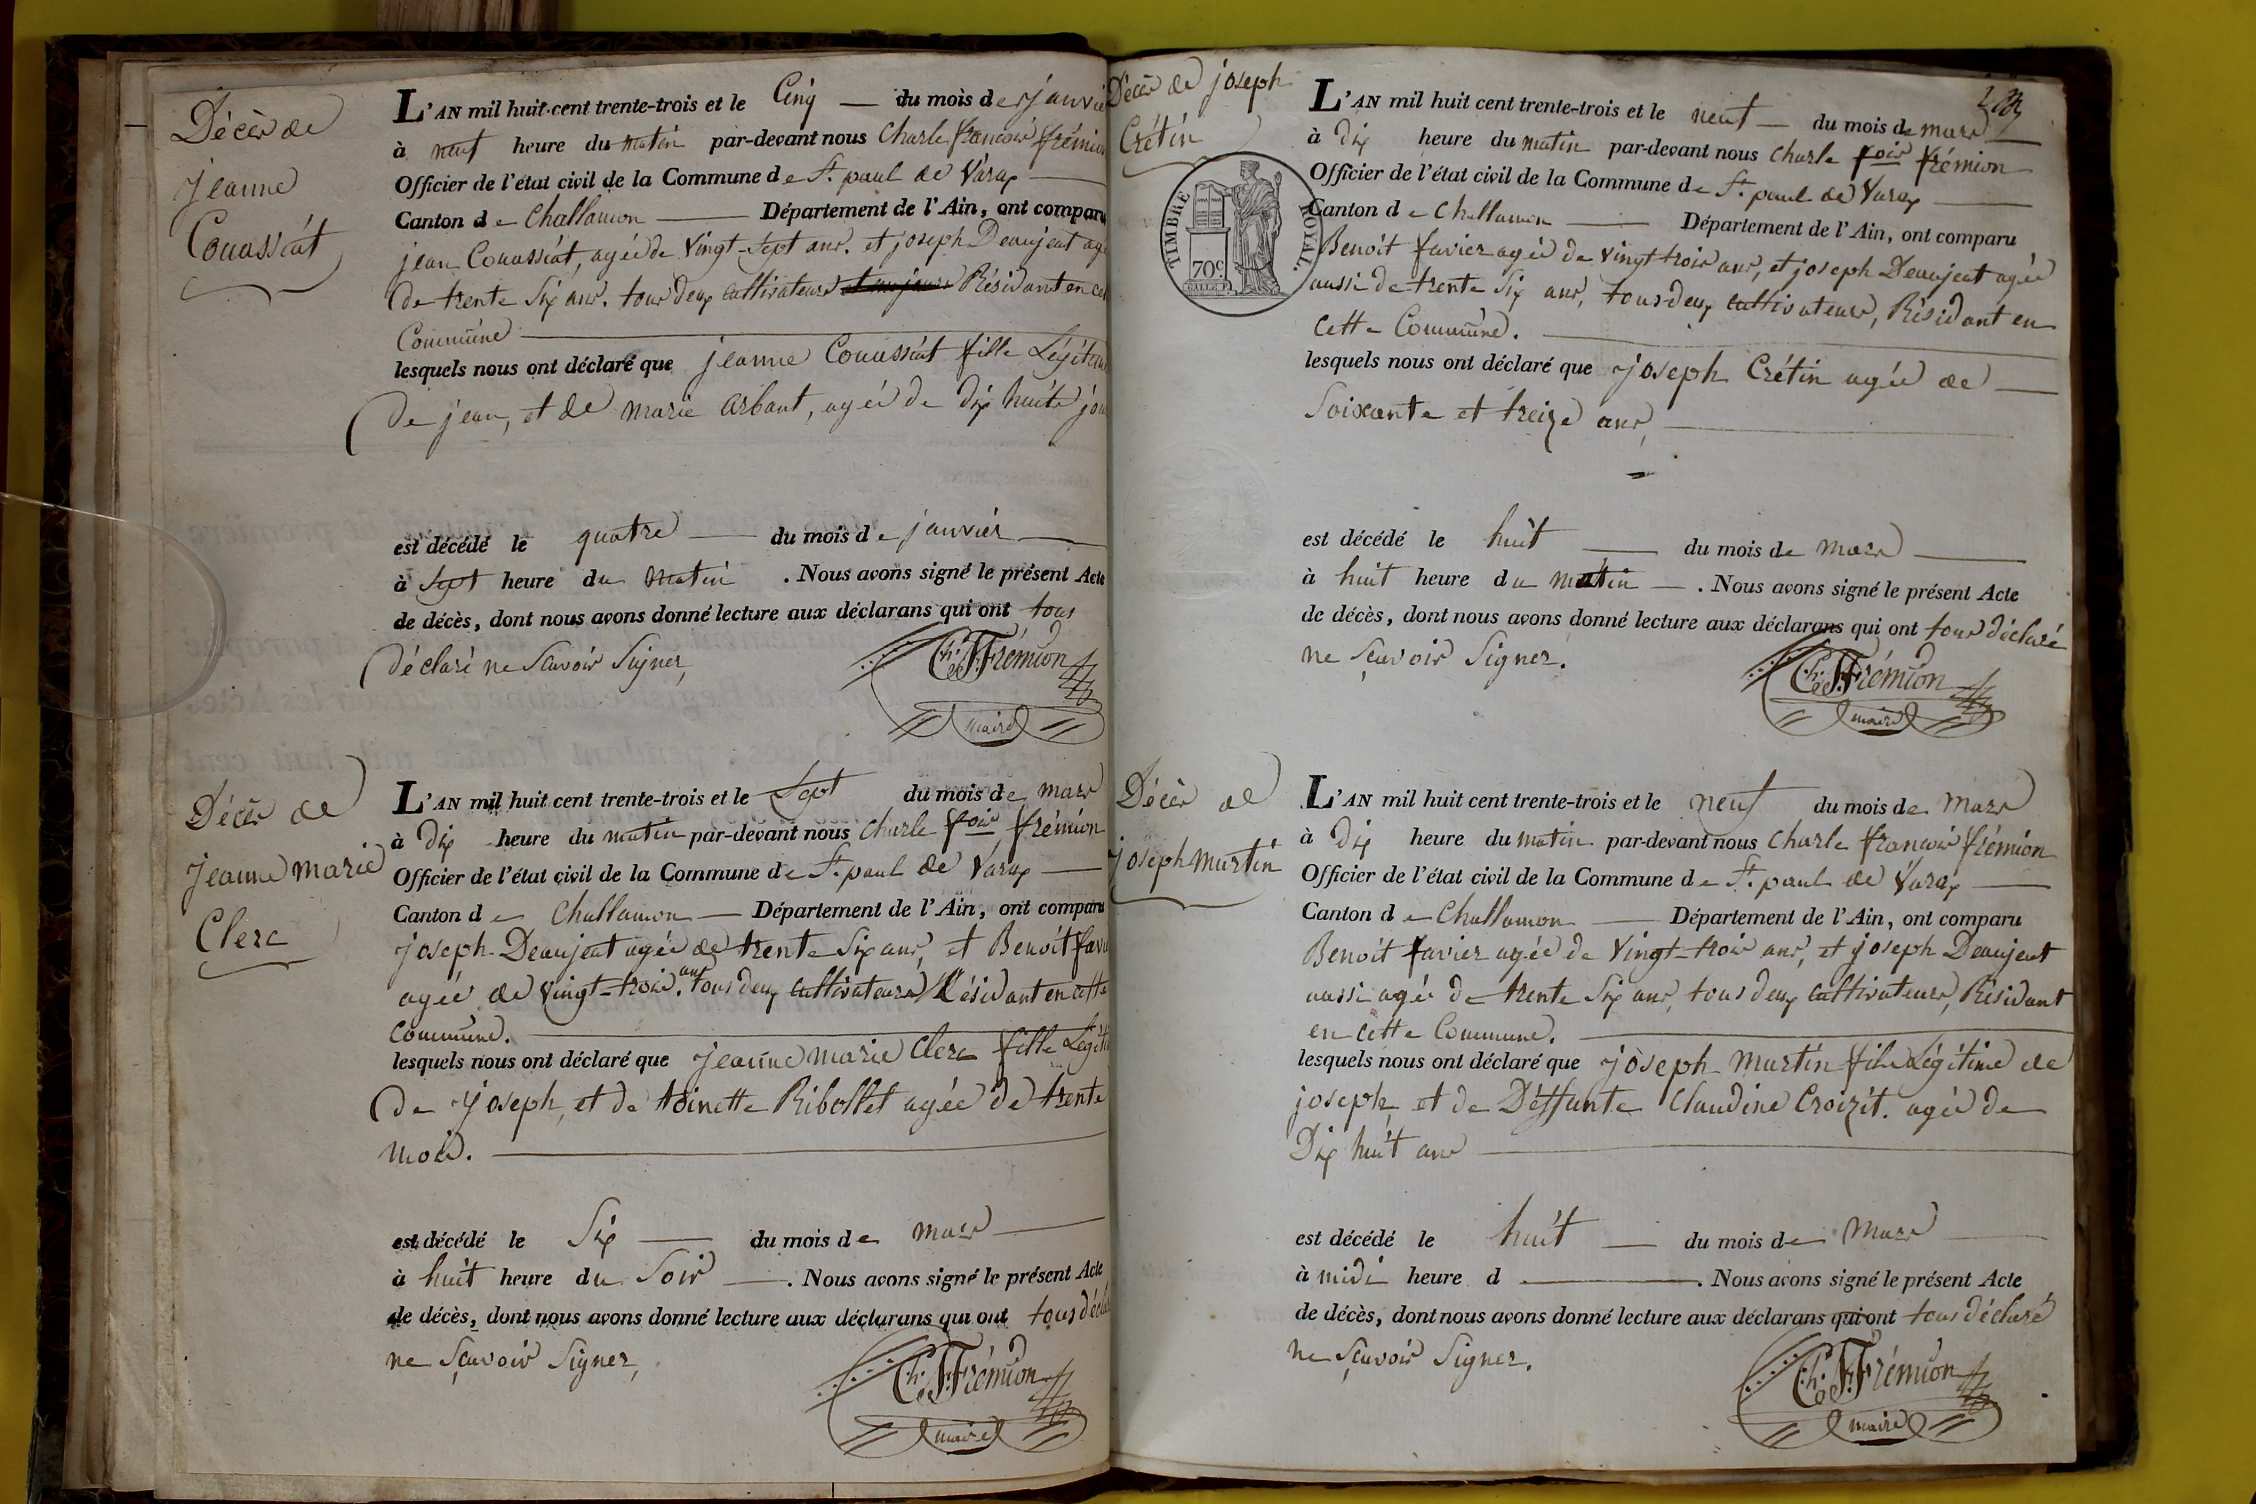 Décès de
jeanne
Couassiat
L'AN mil huit cent trente-trois et le Cinq du mois de janvier
à neuf heure du matin par-devant nous Charle francois frémion
Officier de l'état civil de la Commune de St. paul de Varax
Canton de Challamon Département de l'Ain, ont comparu
jean Couassiat, agée de Vingt-Sept ans. et joseph Deaujeat agé
de trente Six ans. tous deux Cultivateurs Résidant en cette
Commune
lesquels nous ont déclaré que jeanne Couassiat fille Légitime
de jean, et de marie arbant, agée de dix huite jours
est décédé le quatre du mois de janvier
à Sept heure du Matin . Nous avons signé le présent Acte
de décès, dont nous avons donné lecture aux déclarans qui ont tous
déclaré ne Scavoir Signer,
Ch. F. Frémion
maire
Décès de
jeanne marie
Clerc
L'AN mil huit cent trente-trois et le Sept du mois de mars
à Dix heure du matin par-devant nous Charle fois frémion
Officier de l'état civil de la Commune de St. paul de Varax
Canton de Challamon Département de l'Ain, ont comparu
joseph Deaujeat agée de trente Six ans, et Benoit favier
agée de Vingt-trois ans. tous deux Cultivateurs Résidant en cette
Commune.
lesquels nous ont déclaré que jeanne marie Clerc fille Légitime
de joseph, et de toinette Ribollet agée de trente
mois.
est décédé le Six du mois de mars
à huit heure du Soir . Nous avons signé le présent Acte
de décès, dont nous avons donné lecture aux déclarans qui ont tous déclaré
ne Sçavoir Signer,
Ch. F. Frémion
maire
Décès de joseph
Crétin
TIMBRE ROYAL.
70c.
L'AN mil huit cent trente-trois et le neuf du mois de mars
à Dix heure du matin par-devant nous Charle fois frémion
Officier de l'état civil de la Commune de St. paul de Varax
Canton de Challamon Département de l'Ain, ont comparu
Benoit favier agée de vingt trois ans, et joseph Deaujeat agée
aussi de trente Six ans, tous deux Cultivateurs, Résidant en
cette Commune.
lesquels nous ont déclaré que joseph Crétin agée de
Soixante et treize ans,
est décédé le huit du mois de mars
à huit heure du matin . Nous avons signé le présent Acte
de décès, dont nous avons donné lecture aux déclarans qui ont tous déclaré
ne Sçavoir Signer.
Ch. F. Frémion
maire
Décès de
joseph martin
L'AN mil huit cent trente-trois et le neuf du mois de mars
à Dix heure du matin par-devant nous Charle francois frémion
Officier de l'état civil de la Commune de St. paul de Varax
Canton de Challamon Département de l'Ain, ont comparu
Benoit favier agée de Vingt-trois ans, et joseph Deaujeat
aussi agée de trente Six ans, tous deux Cultivateurs, Résidant
en cette Commune.
lesquels nous ont déclaré que joseph martin fils Légitime de
joseph, et de Déffunte Claudine Croizit. agée de
Dix huit ans
est décédé le huit du mois de Mars
à midi heure d . Nous avons signé le présent Acte
de décès, dont nous avons donné lecture aux déclarans qui ont tous déclaré
ne Sçavoir Signer.
Ch. F. Frémion
maire